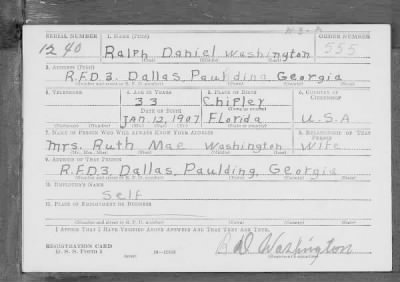 SERIAL NUMBER 1. NAME (Print) ORDER NUMBER
1240 Ralph Daniel Washington 555
(First) (Middle) (Last)
2. ADDRESS (Print)
R.F.D.3. Dallas, Paulding, Georgia
(Number and street or R. F. D. number) (Town) (County) (State)
3. TELEPHONE 4. AGE IN YEARS 5. PLACE OF BIRTH 6. COUNTRY OF CITIZENSHIP
33 Chipley
DATE OF BIRTH
Jan. 12, 1907 Florida U.S.A
(Exchange) (Number) (Mo.) (Day) (Yr.) (State or country)
7. NAME OF PERSON WHO WILL ALWAYS KNOW YOUR ADDRESS 8. RELATIONSHIP OF THAT PERSON
Mrs. Ruth Mae Washington Wife
(Mr., Mrs., Miss) (First) (Middle) (Last)
9. ADDRESS OF THAT PERSON
R.F.D.3, Dallas, Paulding, Georgia
(Number and street or R. F. D. number) (Town) (County) (State)
10. EMPLOYER'S NAME
Self
11. PLACE OF EMPLOYMENT OR BUSINESS
(Number and street or R. F. D. number) (Town) (County) (State)
I AFFIRM THAT I HAVE VERIFIED ABOVE ANSWERS AND THAT THEY ARE TRUE.
REGISTRATION CARD
D. S. S. Form 1 Washington